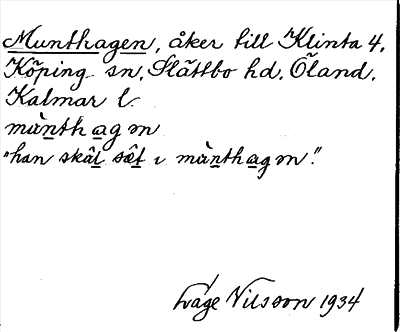 Munthagen, åker till Klinta 4,
Köping sn, Slättbo hd, Öland,
Kalmar l.
mùnthagən
"han skâl sæ̂t ı mùnthagən."
Låge Nilsson 1934